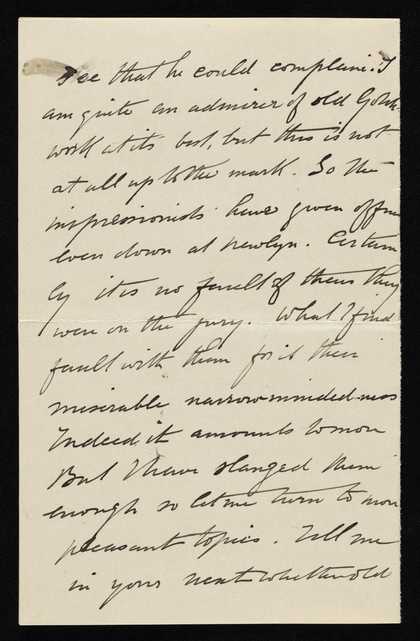 see that he could complain. I
am quite an admirer of old
work at its best, but this is not
at all up to the mark. So the
impressionists have given offence
even down at Newlyn. Certain
ly it is no fault of theirs they
were on the jury. What I find
fault with them for is their
miserable narrow-mindedness
Indeed it amounts to more
But I have slanged them
enough so let me turn to more
pleasant topics. Tell me
in your next whether old